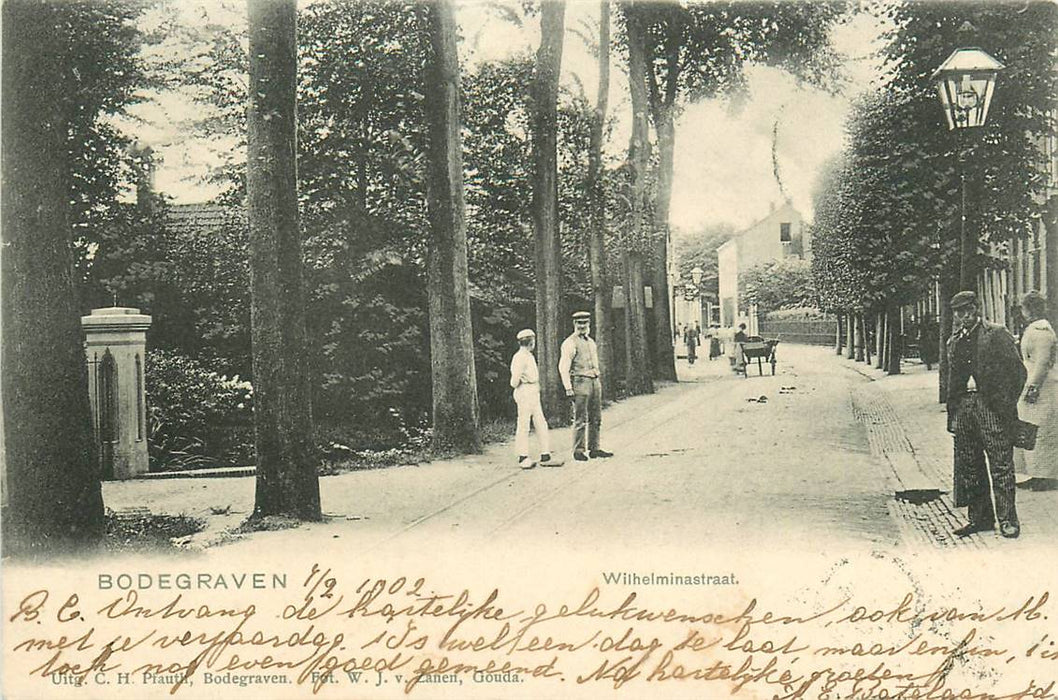 BODEGRAVEN 1/2 1902 Wilhelminastraat.
B. C. Ontvang de hartelijke gelukwenschen, ook van M.
met je verjaardag. 't Is wel een dag te laat maar enfin, 't is
toch nog even goed gemeend. Na hartelijke groeten
Uitg. C. H. Prauth, Bodegraven. Fot. W. J. v. Zanen, Gouda.